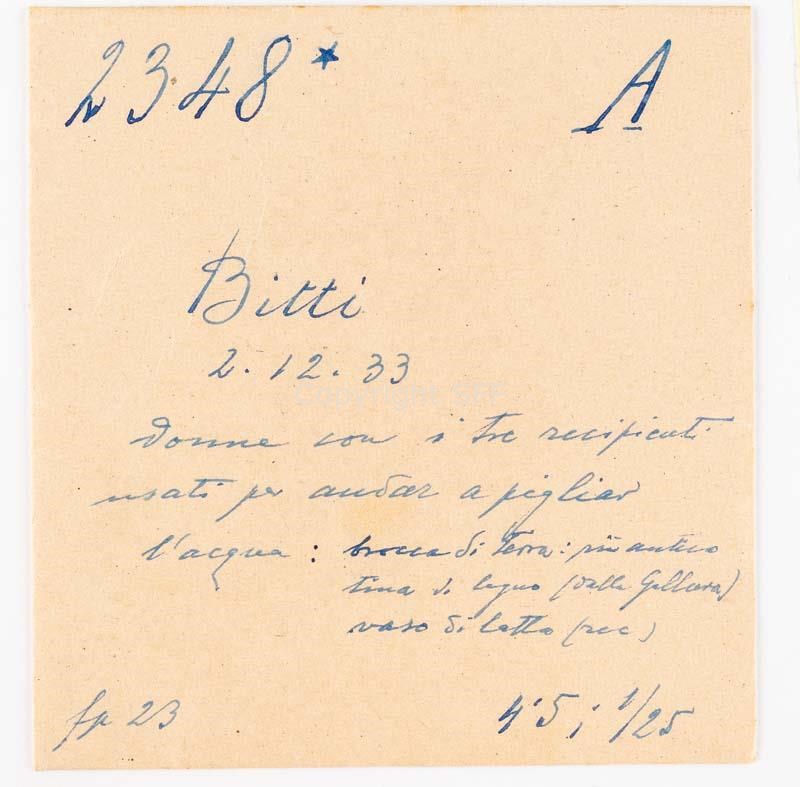 2348* A
Bitti
2.12.33
Copyright
donne con i tre recipienti
usati per andar a pigliar
l'acqua : brocca di terra : più antico
tina di legno (dalla Gallura)
vaso di latta (rec)
fp 23 4.5 ; 1/25